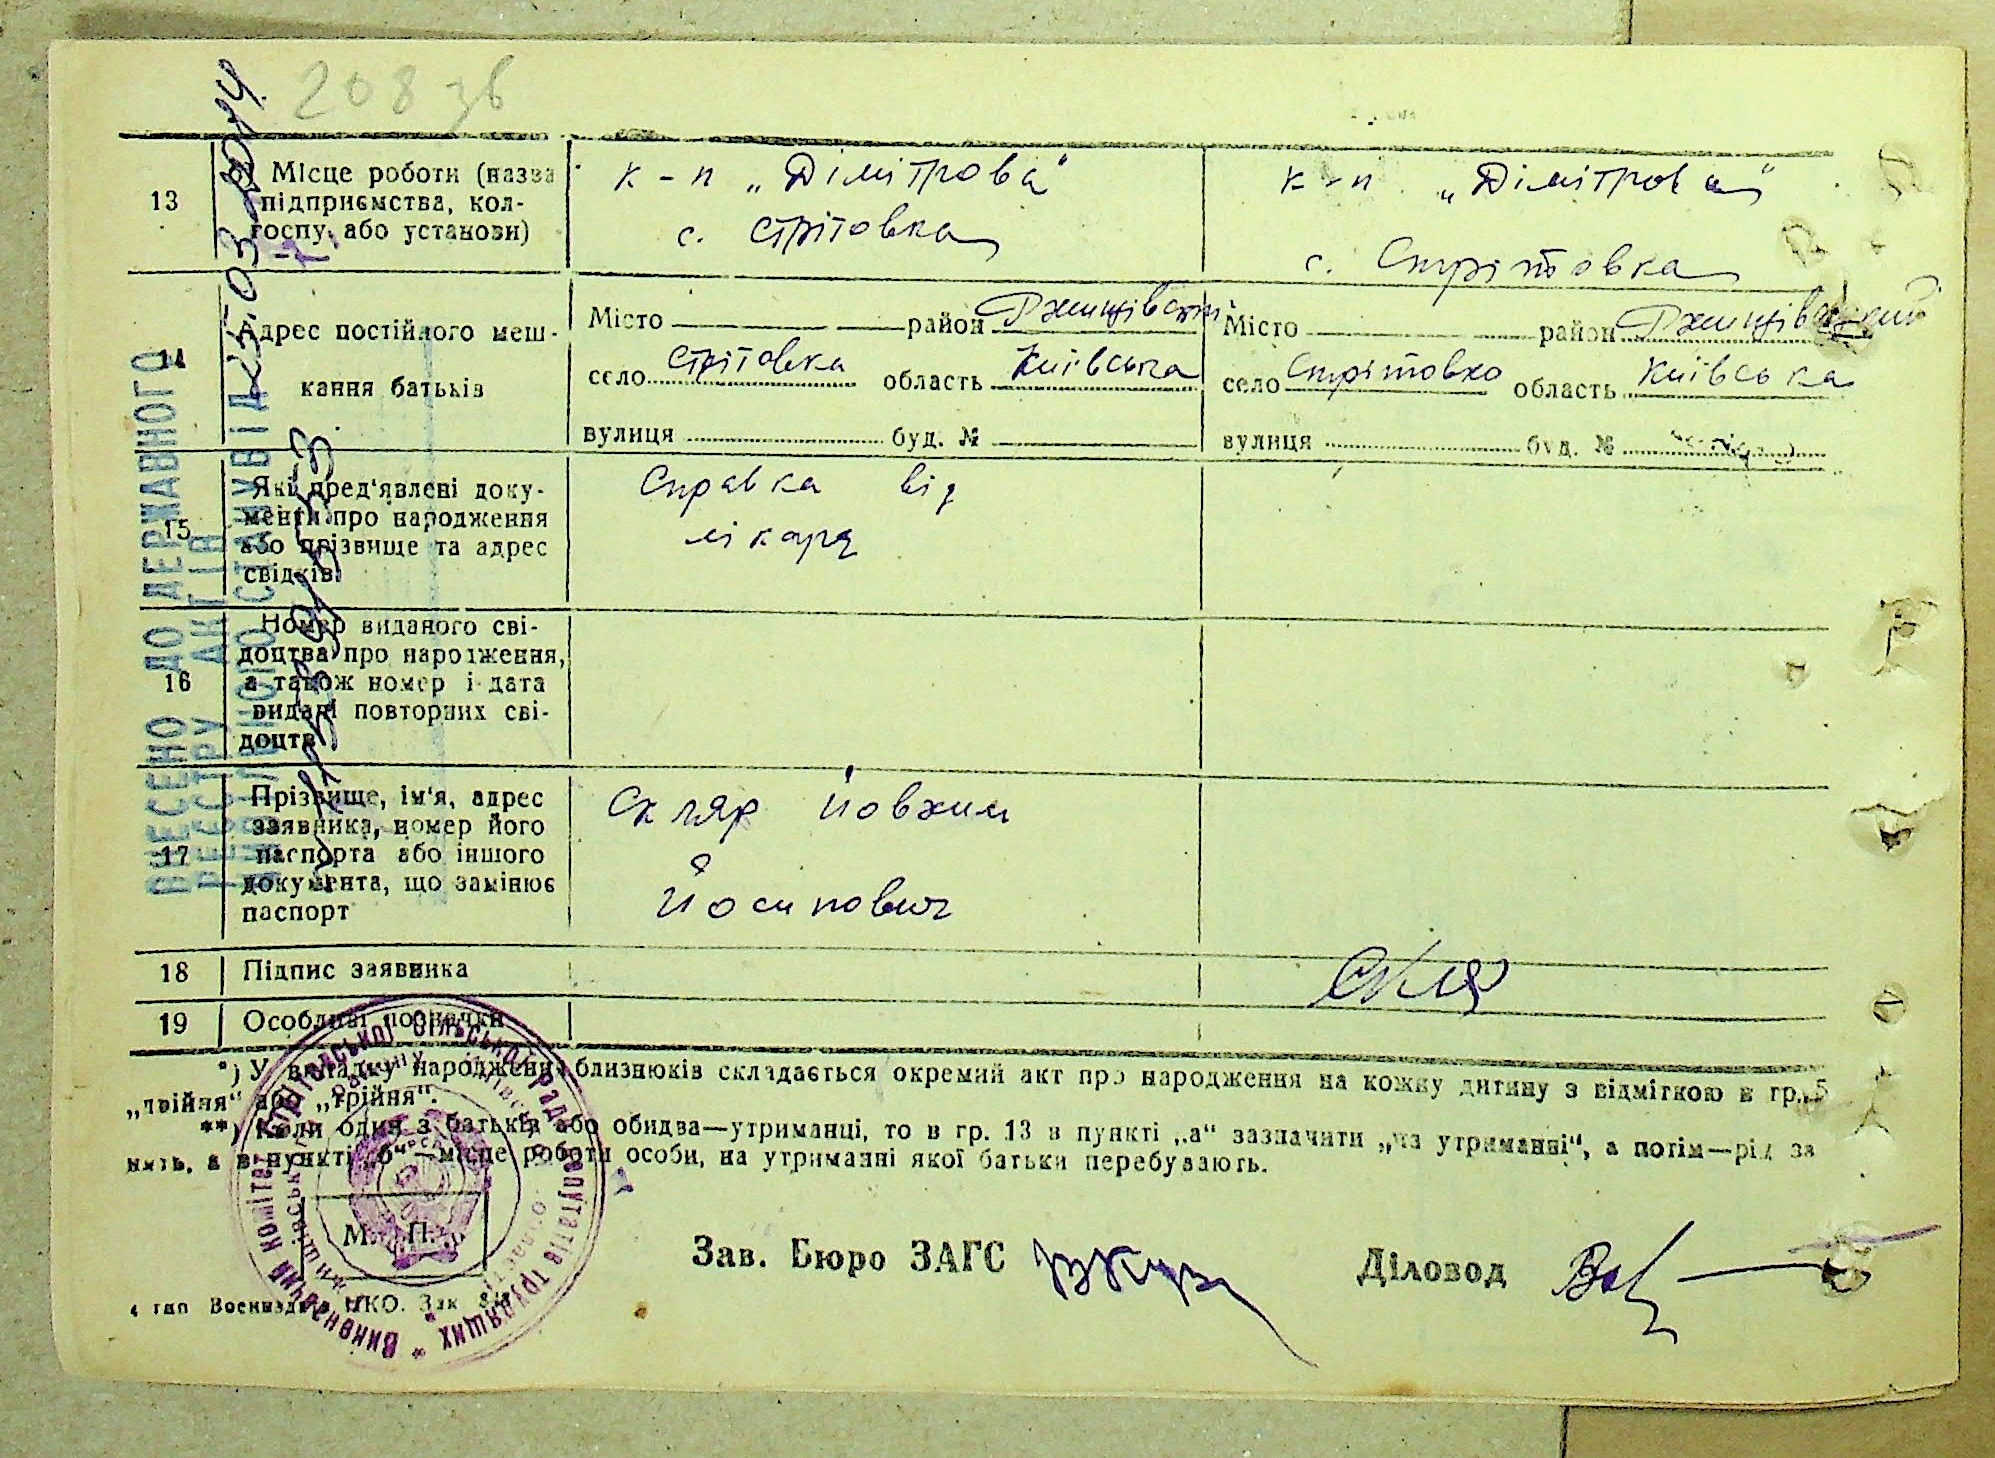 208 зв
13
б) Місце роботи (назва
підприємства, кол-
госпу, або установи)
к-п „Дімітрова“
с. Стрітовка
к-п „Дімітрова“
с. Стрітовка
14
Адрес постійного меш-
кання батьків
Місто район Ржищівский
село Стрітовка область Київська
вулиця буд. №
Місто район Ржищівский
село Стрітовка область Київська
вулиця буд. №
15
Які пред'явлені доку-
менти про народження
або прізвище та адрес
свідків
Справка від
лікаря
16
Номер виданого сві-
доцтва про народження,
а також номер і дата
видачі повторних сві-
доцтв
17
Прізвище, ім'я, адрес
заявника, номер його
паспорта або іншого
документа, що замінює
паспорт
Скляр Йовхим
Йосипович
18 Підпис заявника
Скляр
19 Особливі позначки
*) У випадку народження близнюків складається окремий акт про народження на кожну дитину з відміткою в гр. 5
„двійня“ або „трійня“.
**) Коли один з батьків або обидва—утриманці, то в гр. 13 в пункті „а“ зазначити „на утриманні“, а потім—рід за
нять, а в пункті „б“—місце роботи особи, на утриманні якої батьки перебувають.
М. П.
Зав. Бюро ЗАГС
Діловод
4 тип Воениздата НКО. Зак.
ВНЕСЕНО ДО ДЕРЖАВНОГО
РЕЄСТРУ АКТІВ
ЦИВІЛЬНОГО СТАНУ ВІД 25.03.2014
Виконавчий комітет Стрітовської сільської Ради депутатів трудящих